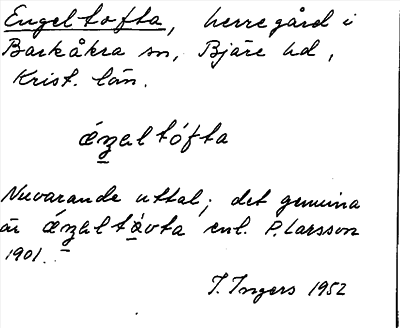 Engeltofta, herregård i
Barkåkra sn, Bjäre hd,
Krist. län.
áŋəltófta
Nuvarande uttal; det genuina
är áŋəltåvta enl. P. Larsson
1901.
I. Ingers 1952